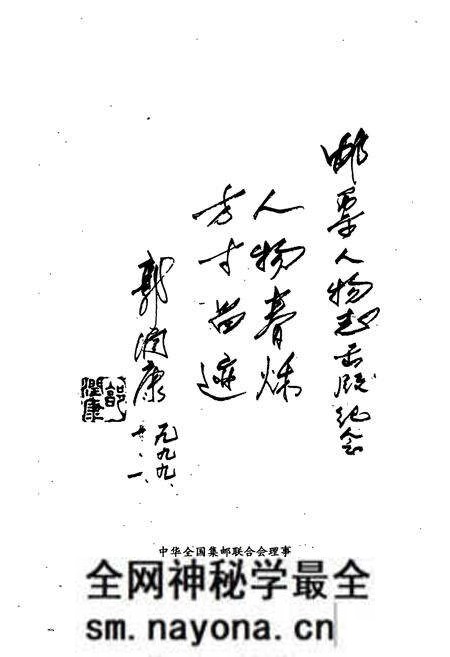 邮票人物志出版纪念
人物春秋
方寸留迹
郭润康
一九九九、
十、一、
郭潤康
中华全国集邮联合会理事
全网神秘学最全
sm.nayona.cn